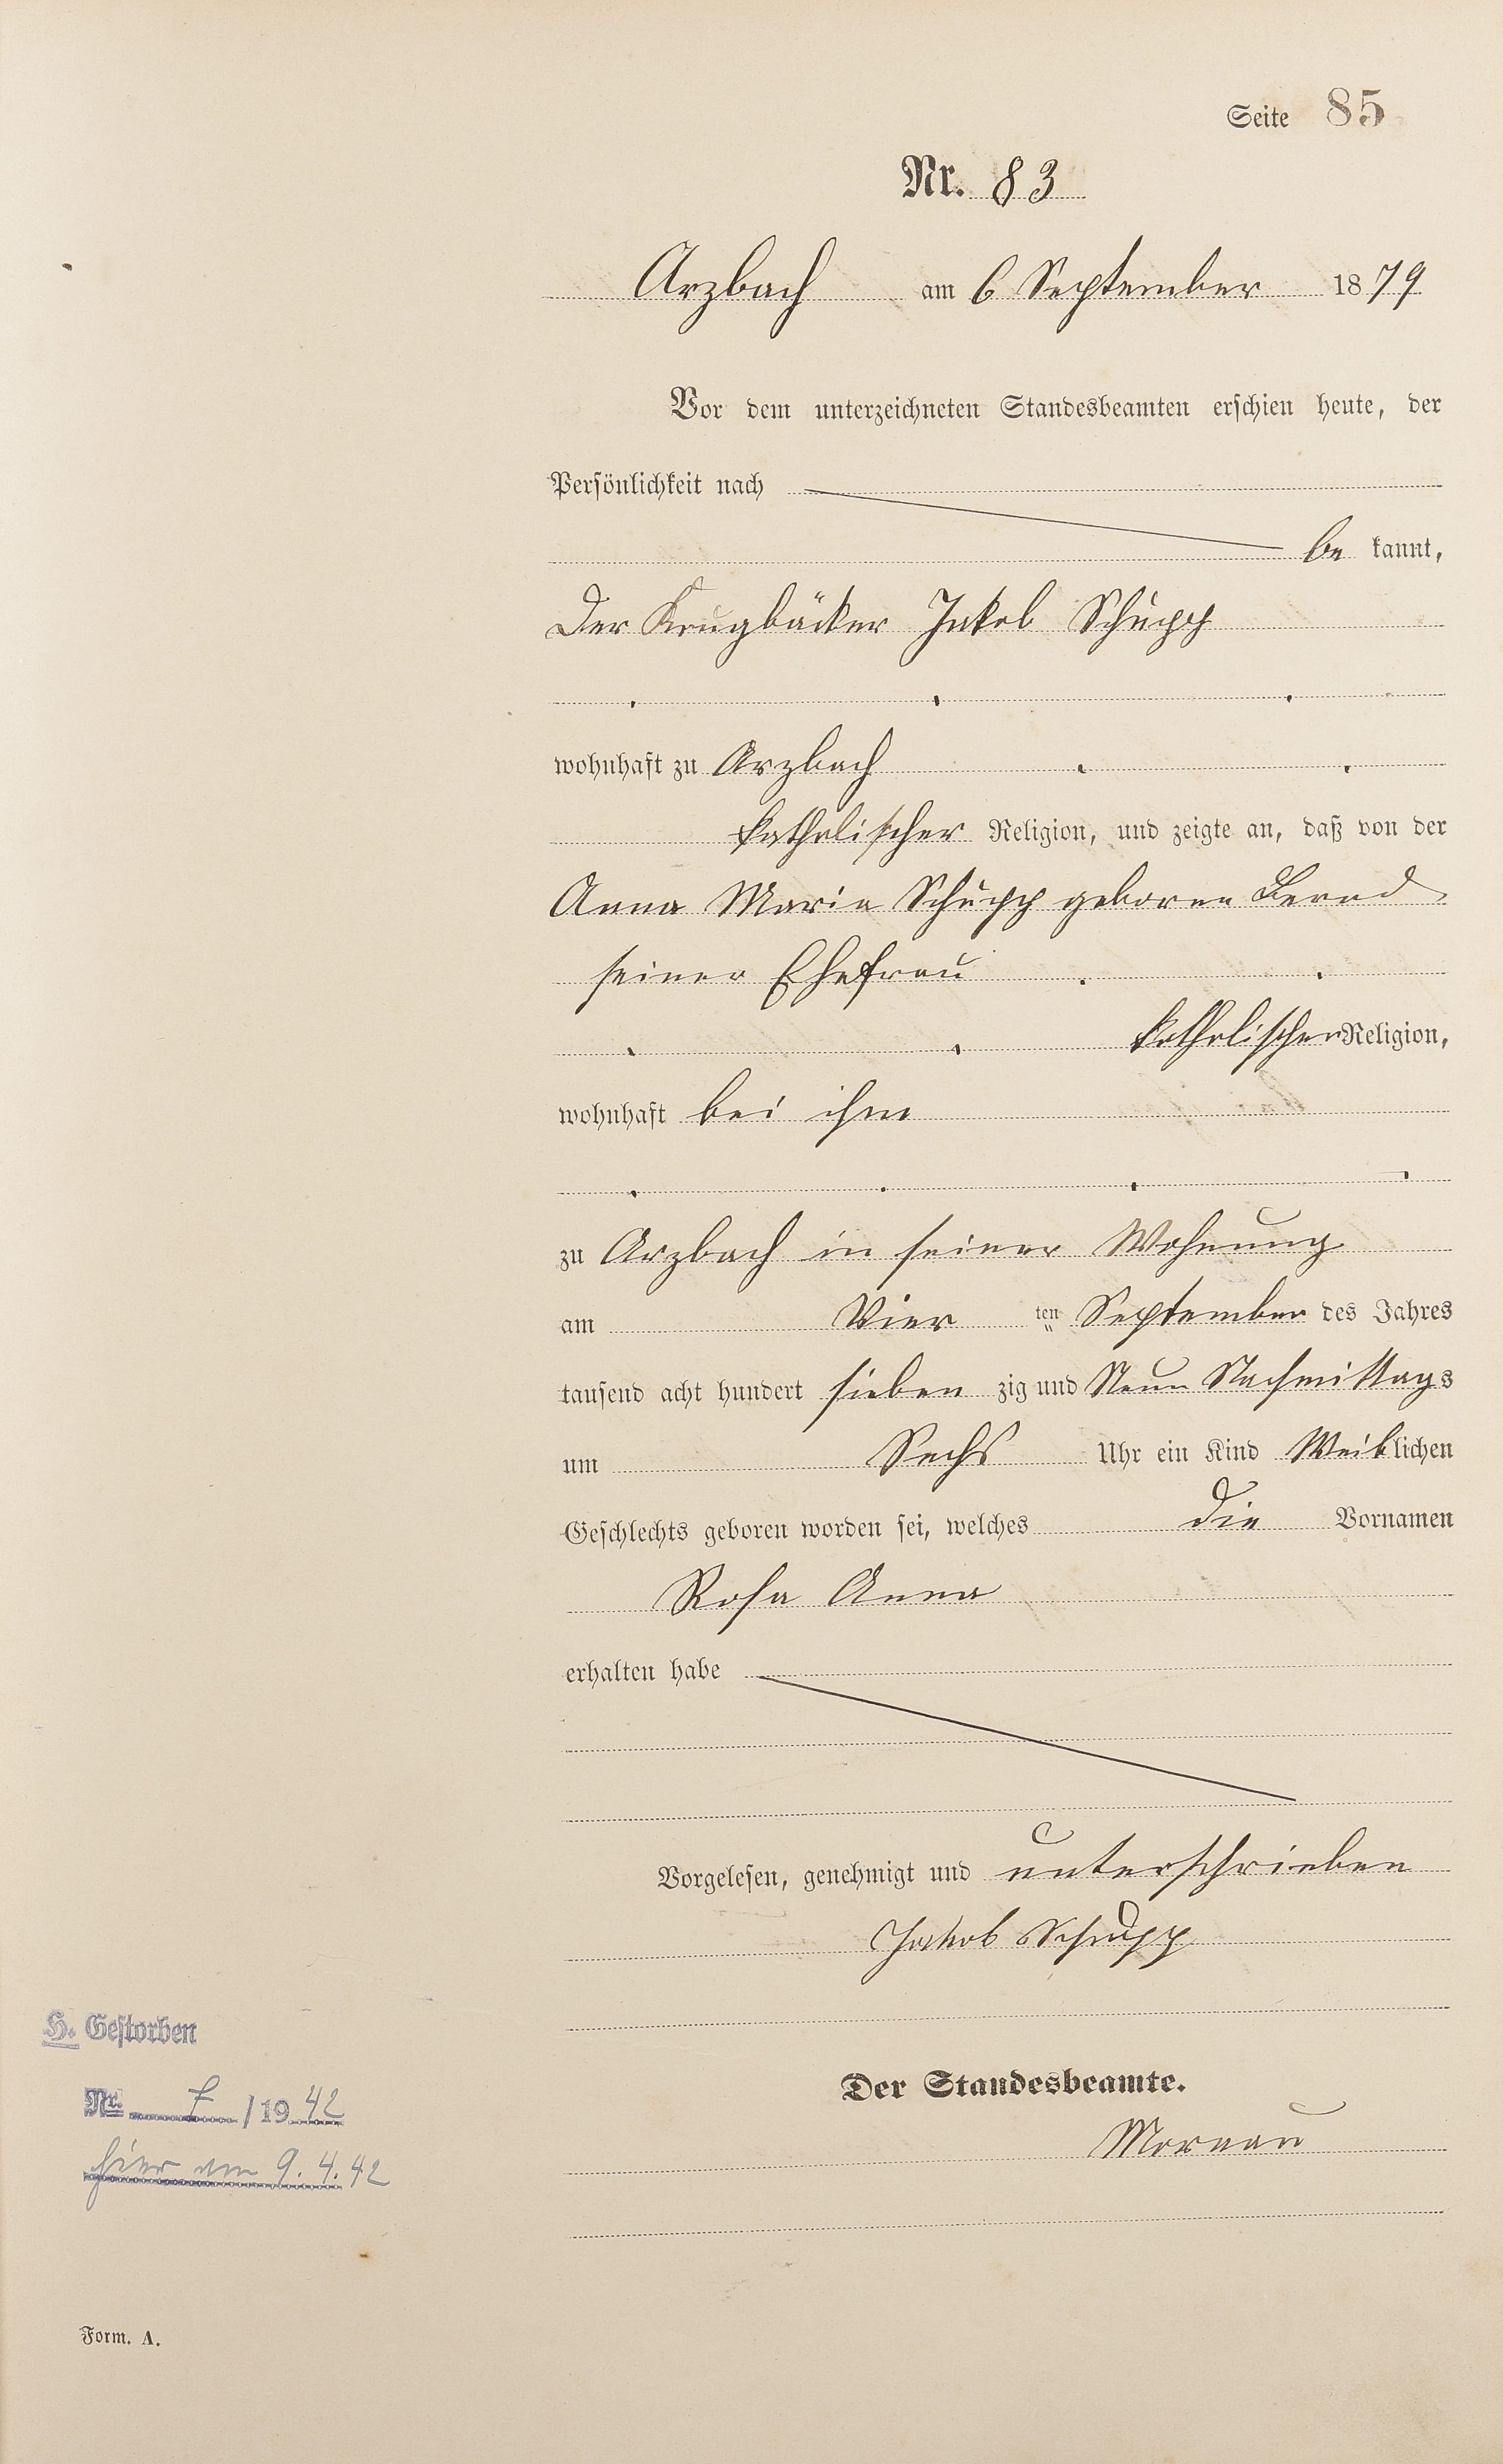 Seite 85
Nr. 83
Arzbach am 6 September 1879
Vor dem unterzeichneten Standesbeamten erschien heute, der
Persönlichkeit nach
be kannt,
Der Krugbäcker Jakob Schupp
wohnhaft zu Arzbach
katholischer Religion, und zeigte an, daß von der
Anna Maria Schupp geborne Bernd
seiner Ehefrau
katholischer Religion,
wohnhaft bei ihm
zu Arzbach in seiner Wohnung
am Vier ten September des Jahres
tausend acht hundert sieben zig und Neun Nachmittags
um Sechs Uhr ein Kind Weiblichen
Geschlechts geboren worden sei, welches die Vornamen
Rosa Anna
erhalten habe
Vorgelesen, genehmigt und unterschrieben
Jakob Schupp
Der Standesbeamte.
H. Gestorben
Nr. 7/1942
hier am 9.4.42
Form. A.